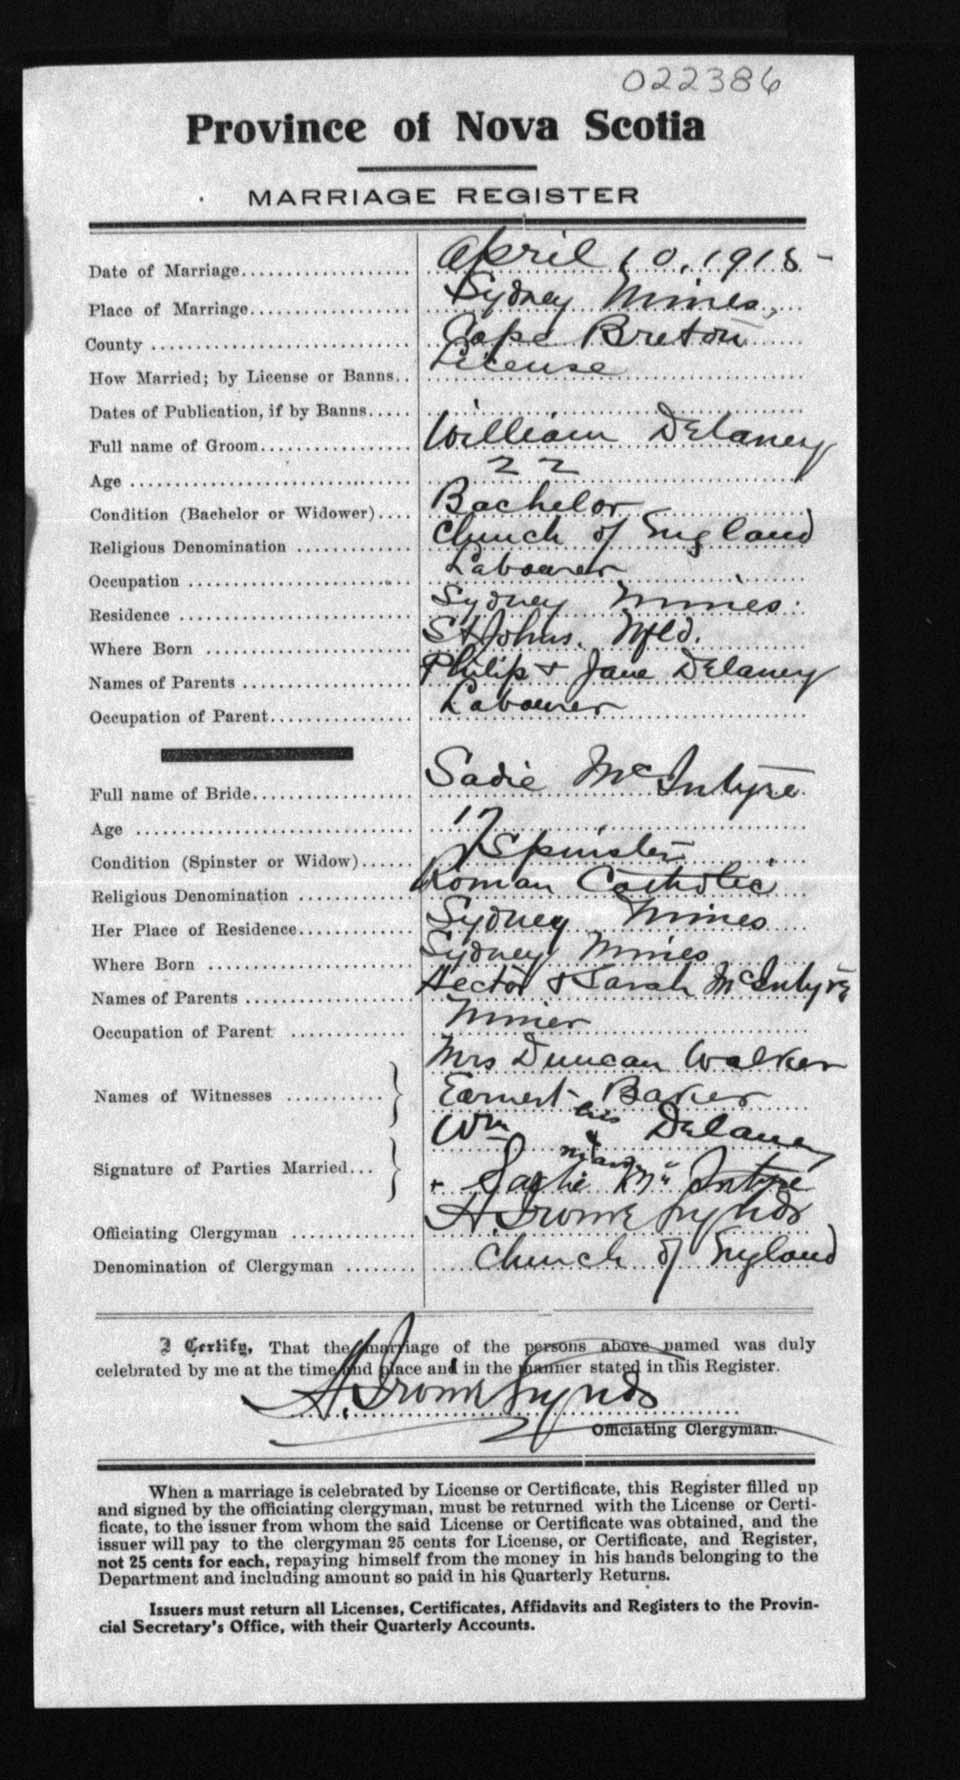 022386
Province of Nova Scotia
MARRIAGE REGISTER
Date of Marriage.................... April 10, 1918 -
Place of Marriage.................. Sydney Mines,
County ............................. Cape Breton
How Married; by License or Banns.. License
Dates of Publication, if by Banns.....
Full name of Groom.................. William Delaney
Age ................................ 22
Condition (Bachelor or Widower).... Bachelor
Religious Denomination ............. Church of England
Occupation ......................... Labourer
Residence .......................... Sydney Mines.
Where Born ......................... St Johns. Nfld.
Names of Parents ................... Philip & Jane Delaney
Occupation of Parent................ Labourer
Full name of Bride.................. Sadie McIntyre
Age ................................ 17
Condition (Spinster or Widow)...... Spinster
Religious Denomination ............. Roman Catholic
Her Place of Residence............. Sydney Mines
Where Born ......................... Sydney Mines
Names of Parents ................... Hector & Sarah McIntyre
Occupation of Parent ............... Miner
Names of Witnesses ........... } Mrs Duncan Walker
Earnest Baker
Signature of Parties Married... } Wm his + mark Delaney
+ Sadie McIntyre
Officiating Clergyman ..............
Denomination of Clergyman ........ Church of England
I Certify, That the marriage of the persons above named was duly
celebrated by me at the time and place and in the manner stated in this Register.
Officiating Clergyman.
When a marriage is celebrated by License or Certificate, this Register filled up
and signed by the officiating clergyman, must be returned with the License or Certi-
ficate, to the issuer from whom the said License or Certificate was obtained, and the
issuer will pay to the clergyman 25 cents for License, or Certificate, and Register,
not 25 cents for each, repaying himself from the money in his hands belonging to the
Department and including amount so paid in his Quarterly Returns.
Issuers must return all Licenses, Certificates, Affidavits and Registers to the Provin-
cial Secretary's Office, with their Quarterly Accounts.